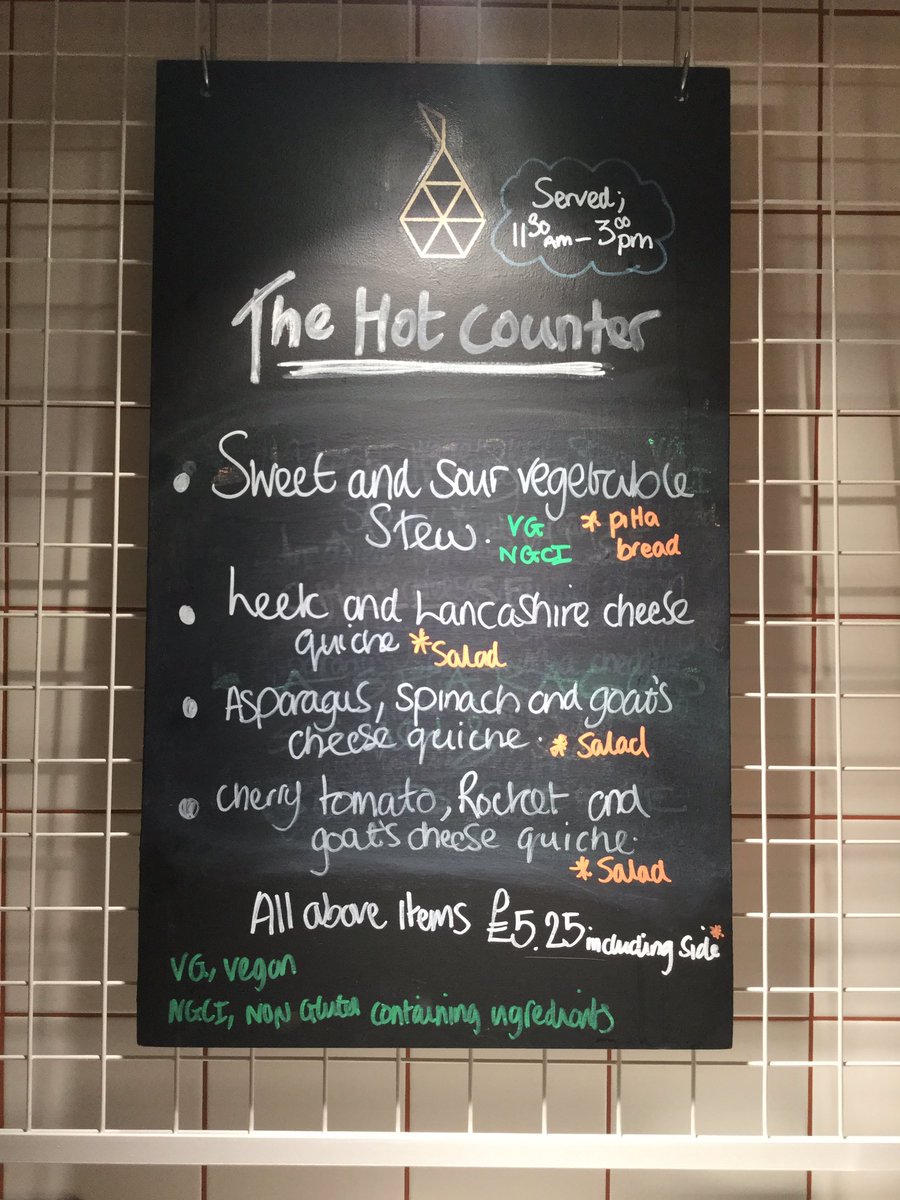 Served;
11 30 AM – 3 00 pm
The Hot counter
• Sweet and sour vegetable
Stew. VG * pitta
NGCI bread
• Leek and Lancashire cheese
quiche *Salad
• Asparagus, spinach and goat's
cheese quiche. * Salad
• cherry tomato, Rocket and
goat's cheese quiche.
* Salad
All above Items £5.25 including side*
VG, vegan
NGCI, NON Gluten containing ingredients